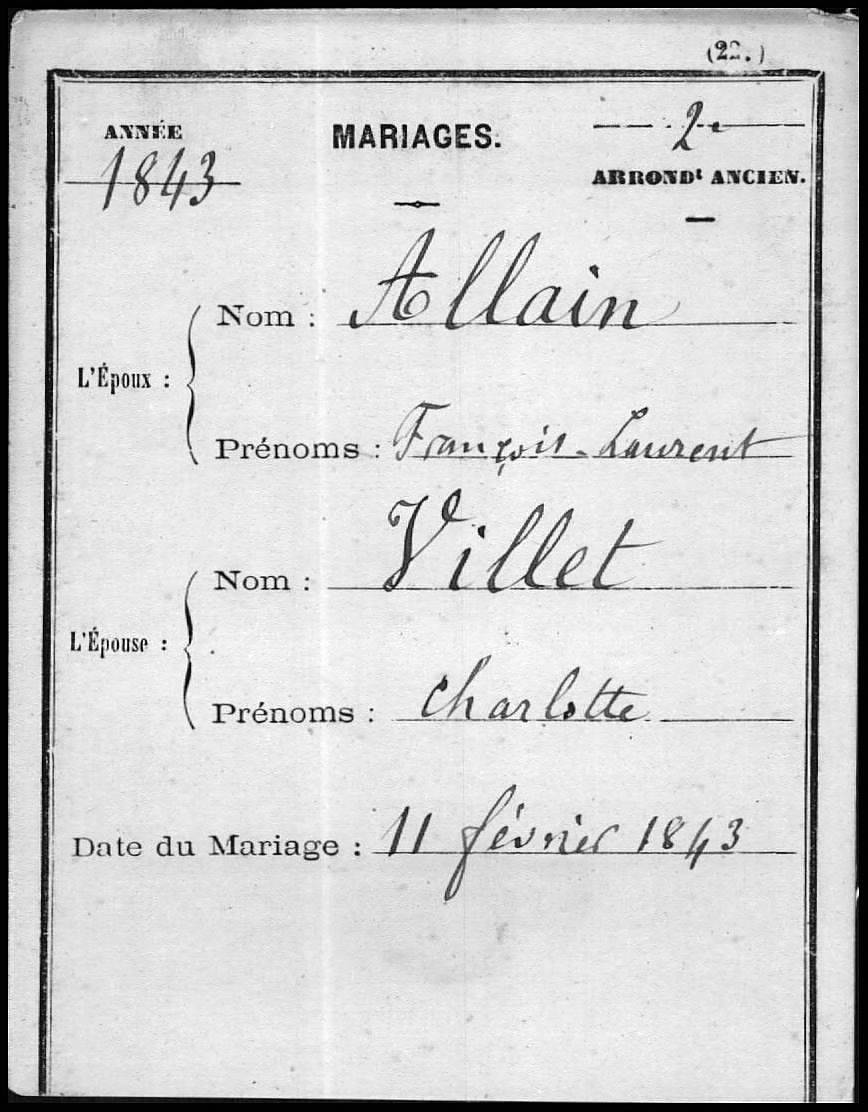 (22.)
ANNÉE
1843
MARIAGES.
2e
ARRONDt ANCIEN.
L'Époux :
Nom : Allain
Prénoms : François-Laurent
L'Épouse :
Nom : Villet
Prénoms : Charlotte
Date du Mariage : 11 février 1843